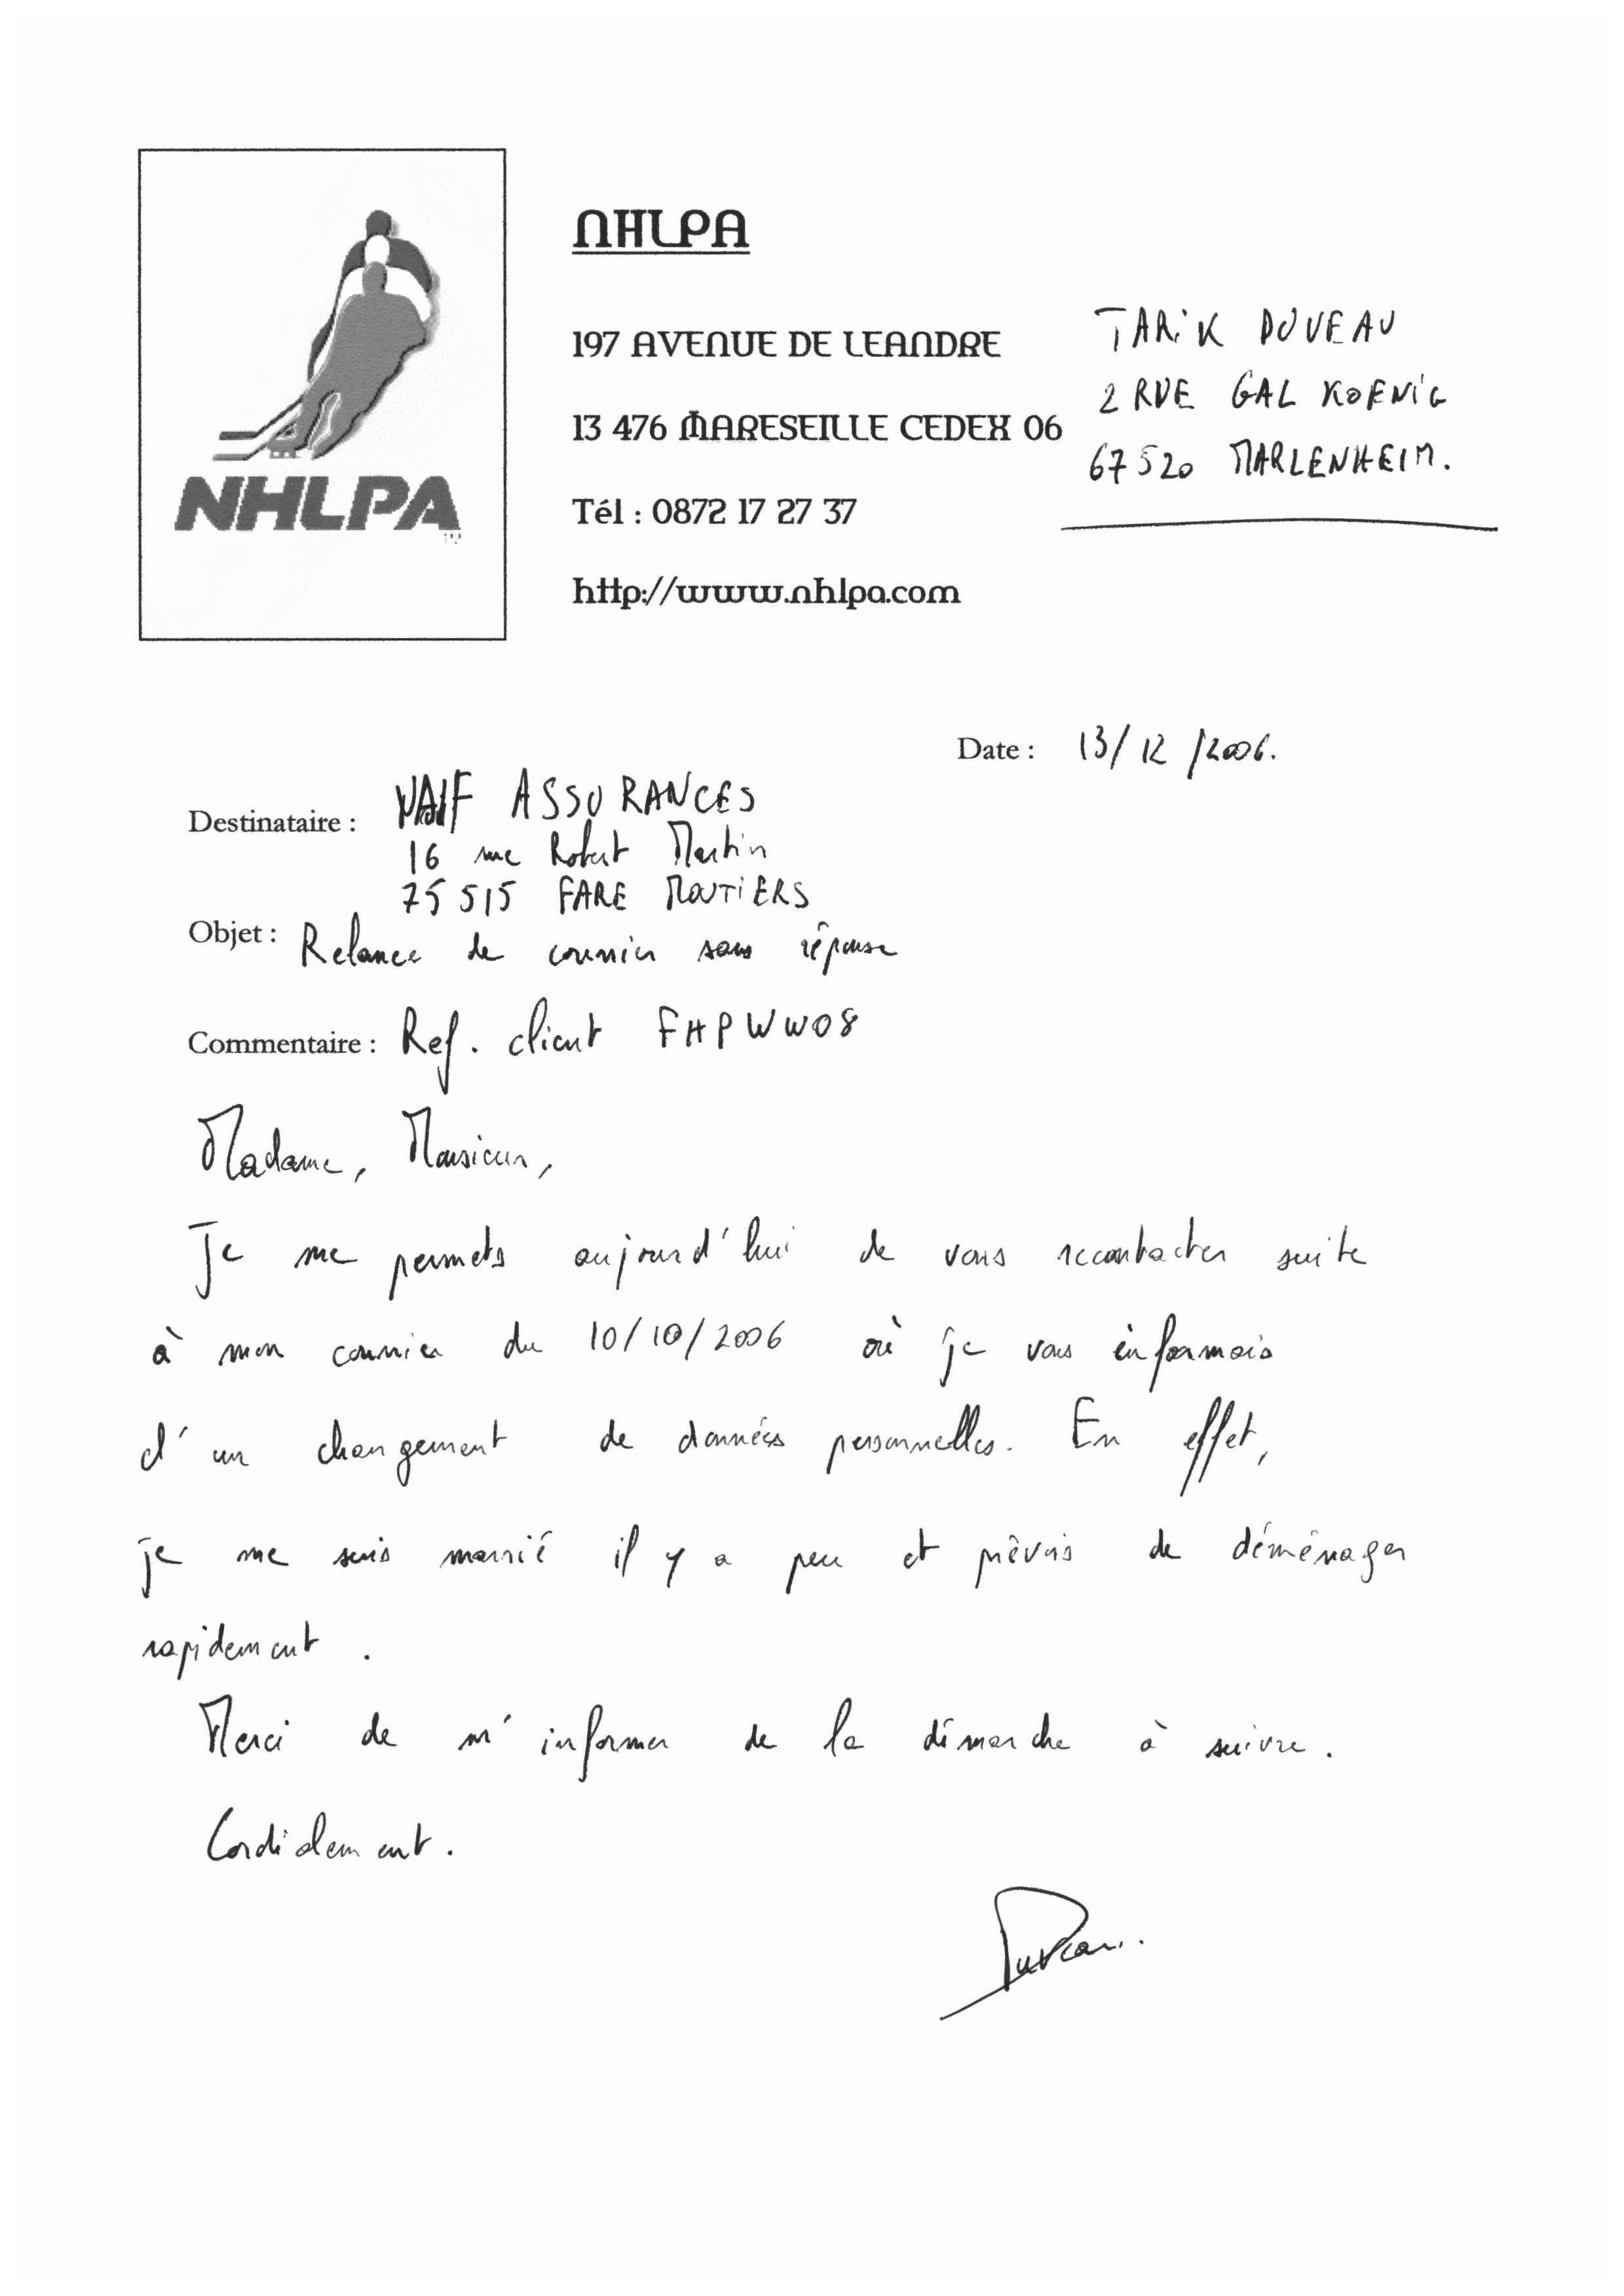 NHLPA
NHLPA
197 AVENUE DE LEANDRE
13 476 MARESEILLE CEDEX 06
Tél : 0872 17 27 37
http://www.nhlpa.com
TARIK DUVEAU
2 RUE GAL KOENIG
67520 MARLENHEIM.
Date : 13/12/2006.
Destinataire : MAIF ASSURANCES
16 rue Robert Martin
75515 FARE MOUTIERS
Objet : Relance de courrier sans réponse
Commentaire : Ref. client FHPWW08
Madame, Monsieur,
Je me permets aujourd'hui de vous recontacter suite
à mon courrier du 10/10/2006 où je vous informais
d'un changement de données personnelles. En effet,
je me suis marrié il y a peu et prévois de déménager
rapidement.
Merci de m'informer de la démarche à suivre.
Cordialement.
Duveau